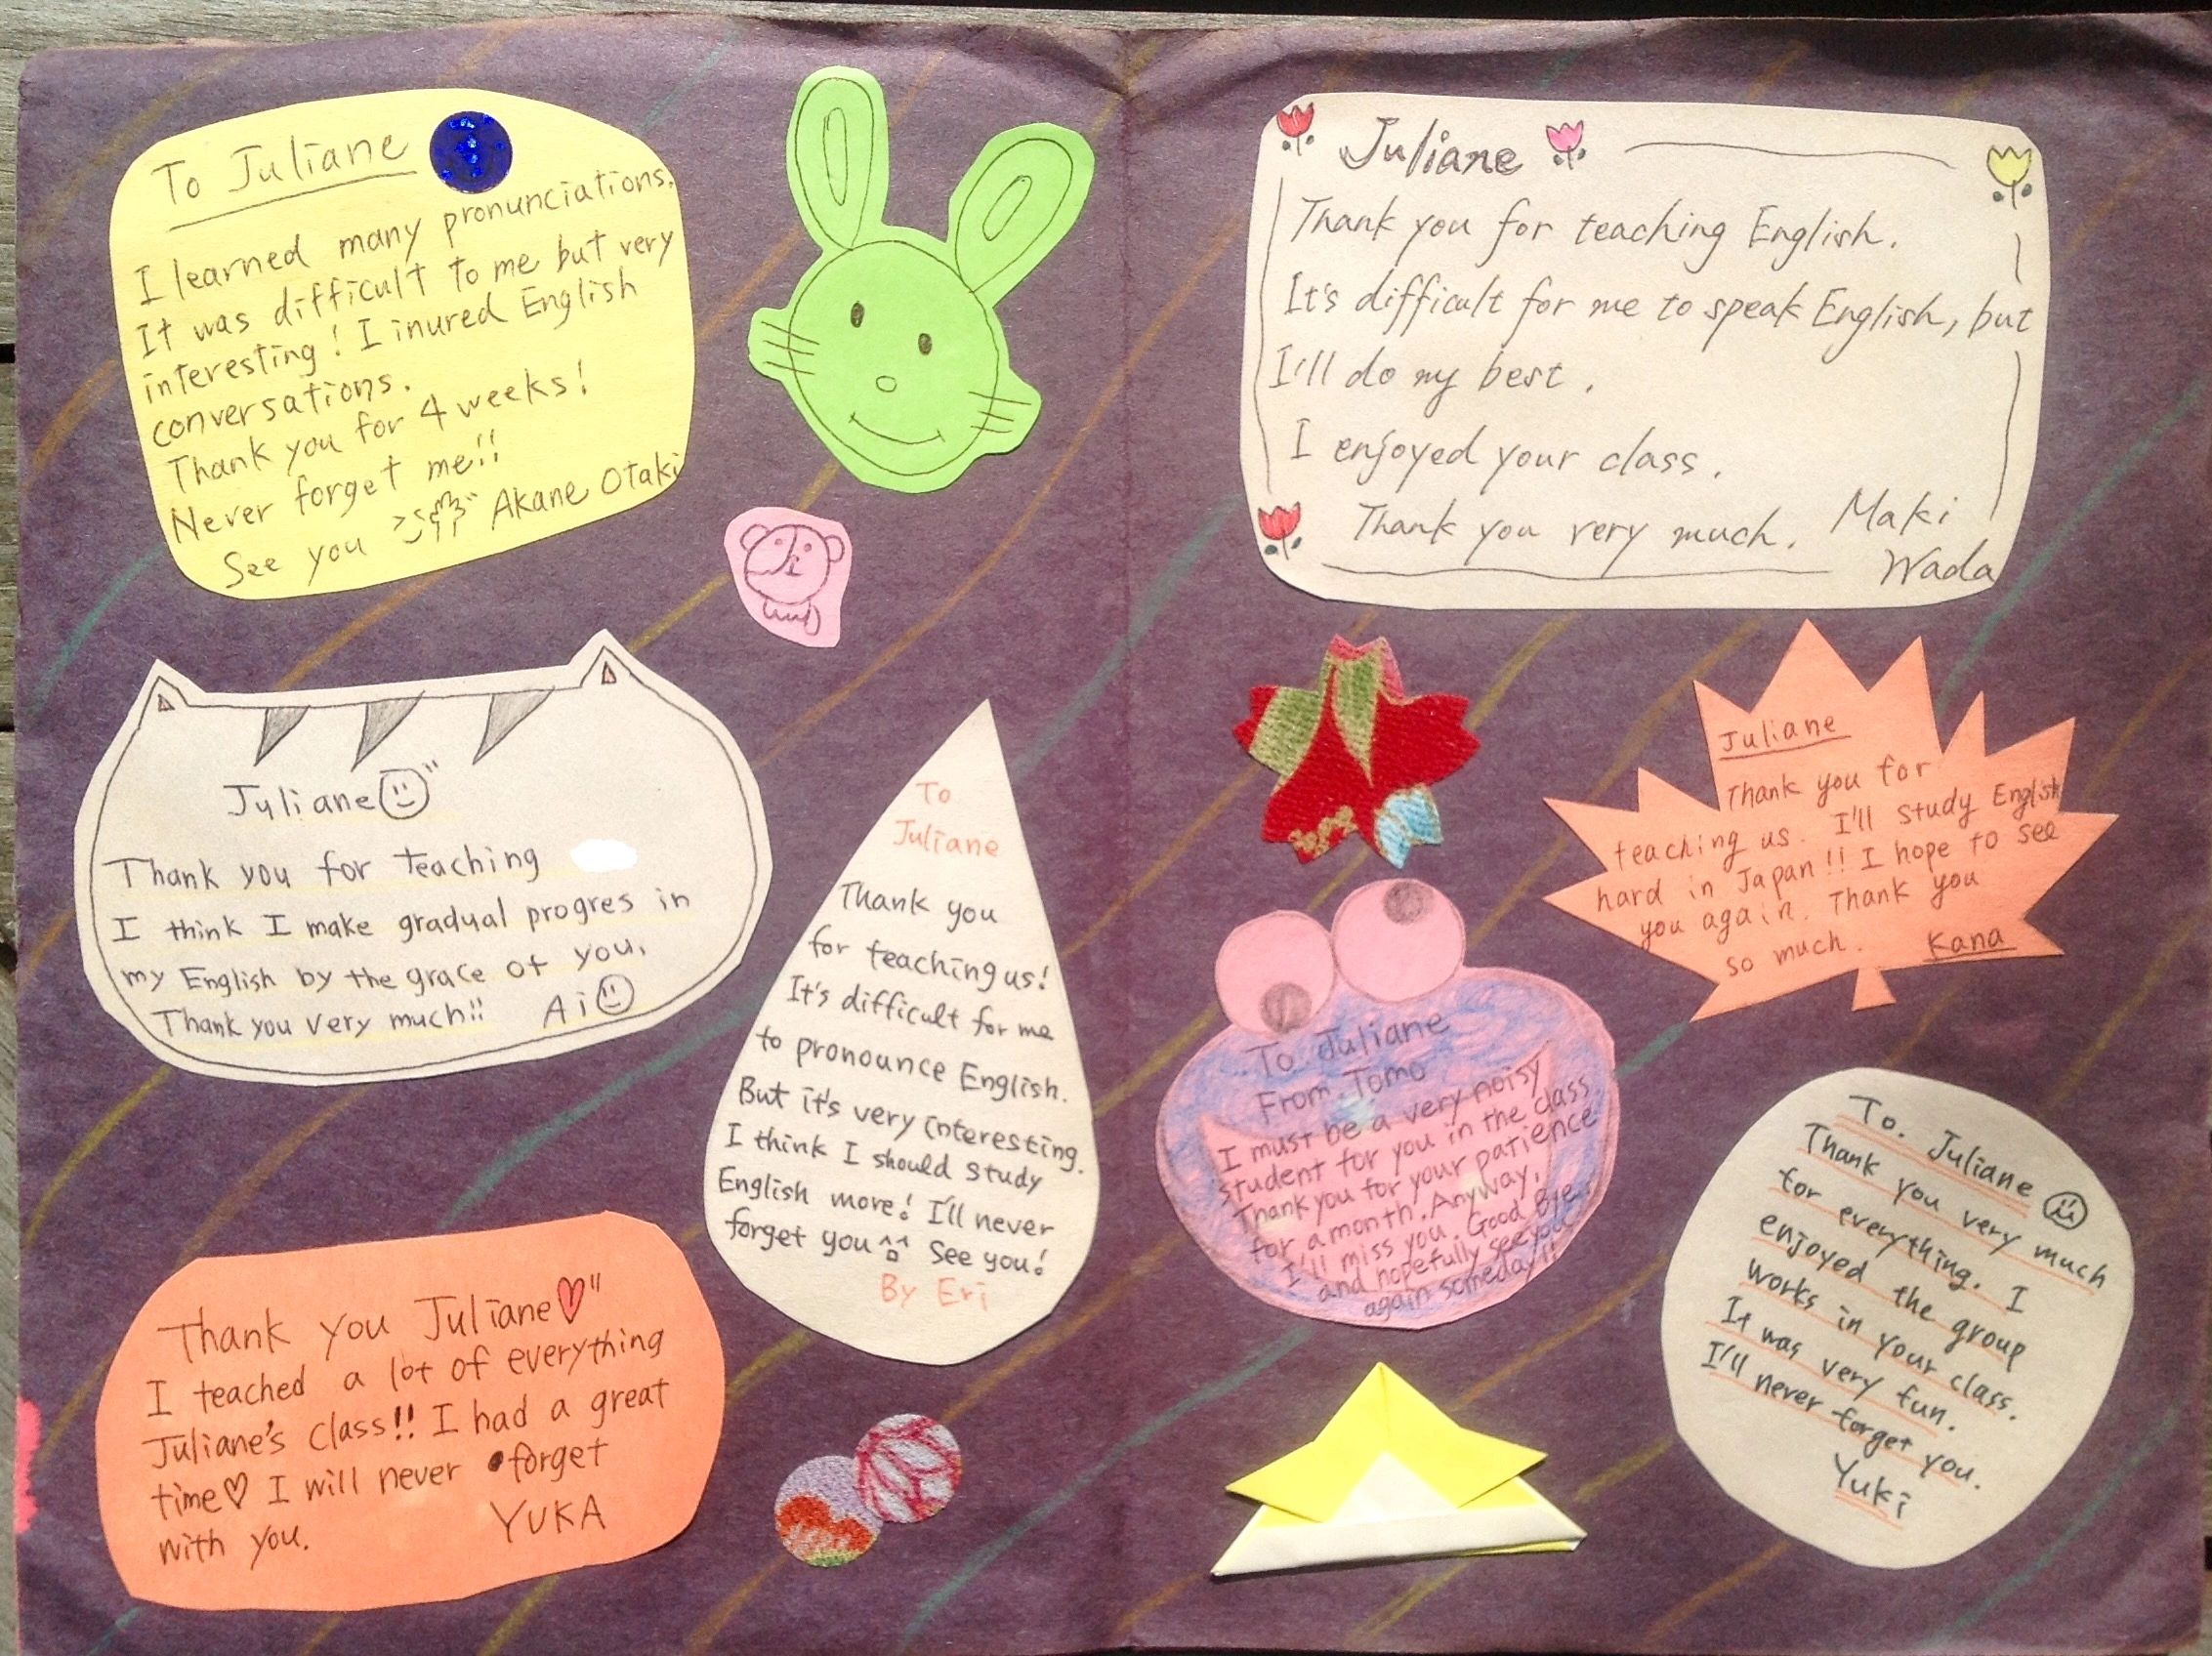 To Juliane
I learned many pronunciations.
It was difficult to me but very
interesting! I inured English
conversations.
Thank you for 4 weeks!
Never forget me!!
See you Akane Otaki
Juliane
Thank you for teaching English.
It's difficult for me to speak English, but
I'll do my best.
I enjoyed your class.
Thank you very much. Maki
Wada
Juliane
Thank you for teaching
I think I make gradual progres in
my English by the grace of you.
Thank you very much!! Ai
To
Juliane
Thank you
for teaching us!
It's difficult for me
to pronounce English.
But it's very interesting.
I think I should study
English more! I'll never
forget you See you!
By Eri
Juliane
Thank you for
teaching us. I'll study English
hard in Japan!! I hope to see
you again. Thank you
so much. Kana
To Juliane
From Tomo
I must be a very noisy
student for you in the class.
Thank you for your patience
for a month. Anyway,
I'll miss you. Good Bye
and hopefully see you
again someday!!
Thank you Juliane♡"
I teached a lot of everything
Juliane's class!! I had a great
time♡ I will never forget
with you. YUKA
To. Juliane
Thank you very much
for everything. I
enjoyed the group
works in your class.
It was very fun.
I'll never forget you.
Yuki